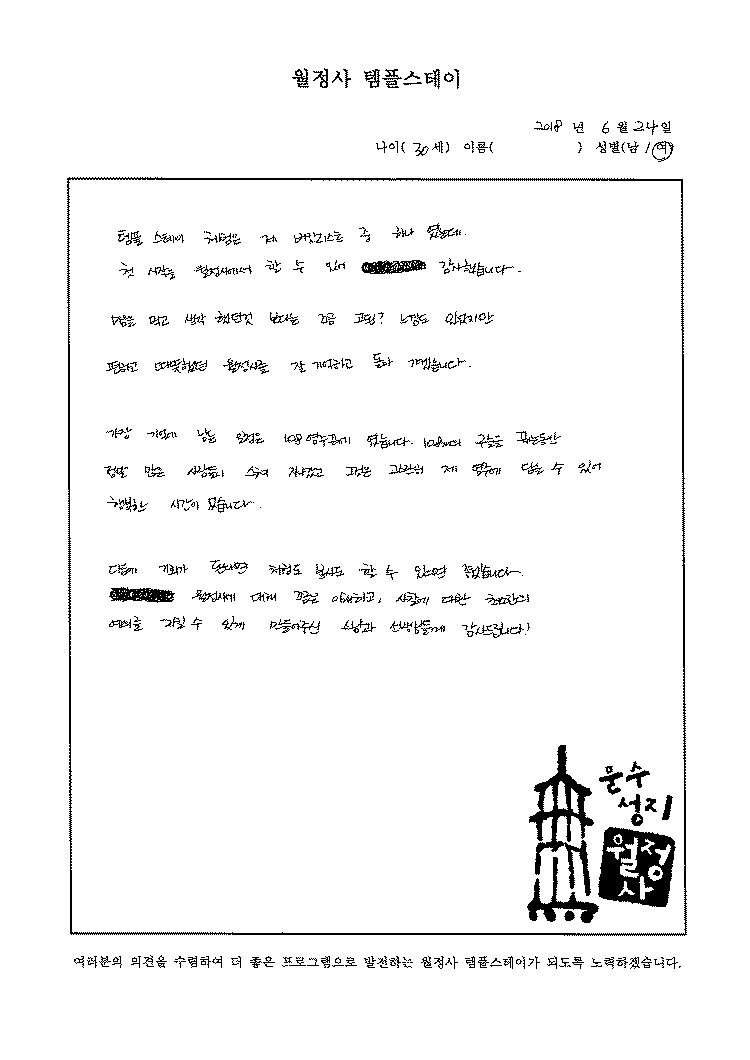 월정사 템플스테이
2018 년 6 월 24 일
나이( 30 세) 이름( ) 성별(남 / 여)
템플 스테이 체험은 제 버킷리스트 중 하나 였는데.
첫 시작을 월정사에서 할 수 있어 감사했습니다.
마음을 먹고 생각 했던것 보다는 조금 고된? 느낌도 있었지만
편하고 따뜻했던 월정사를 잘 기억하고 돌아 가겠습니다.
가장 기억에 남는 일정은 108염주꿰기 였습니다. 108배와 구슬을 꿰는동안
정말 많은 사람들이 스쳐 지나갔고 고맙은 제 염주에 담을 수 있어
행복한 시간이 였습니다.
다음에 기회가 된다면 체험도 봉사도 할 수 있으면 좋겠습니다.
월정사에 대해 조금은 이해하고, 사찰에 대한
여유를 가질 수 있게 만들어주신 스님과 선생님들께 감사드립니다!
문수
성지
월정
사
여러분의 의견을 수렴하여 더 좋은 프로그램으로 발전하는 월정사 템플스테이가 되도록 노력하겠습니다.